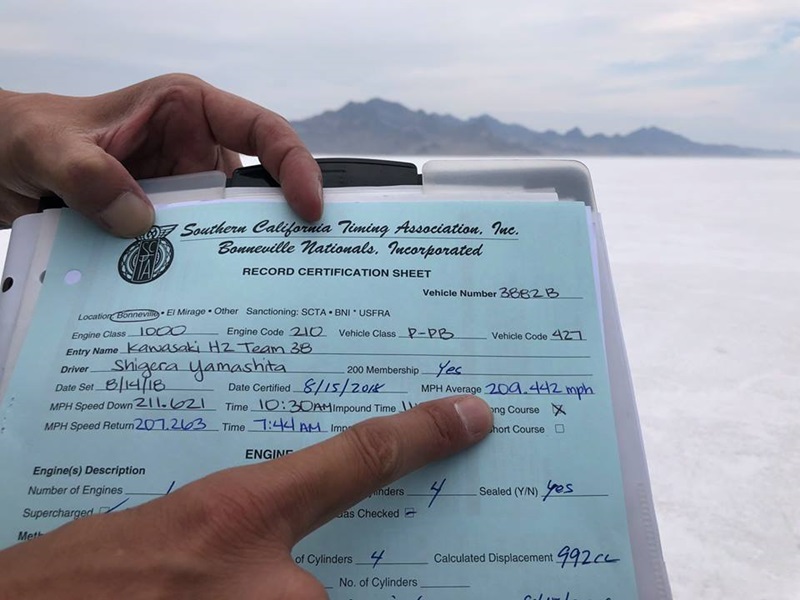 SCTA
Southern California Timing Association, Inc.
Bonneville Nationals, Incorporated
RECORD CERTIFICATION SHEET
Vehicle Number 3882B
Location: Bonneville • El Mirage • Other Sanctioning: SCTA • BNI * USFRA
Engine Class 1000 Engine Code 210 Vehicle Class P-PB Vehicle Code 427
Entry Name Kawasaki H2 Team 38
Driver Shigeru Yamashita 200 Membership Yes
Date Set 8/14/18 Date Certified 8/15/2018 MPH Average 209.442 mph
MPH Speed Down 211.621 Time 10:30AM Impound Time Course X
MPH Speed Return 207.263 Time 7:44 AM Course
Engine(s) Description
Number of Engines 1 4 Sealed (Y/N) Yes
Supercharged Gas Checked
of Cylinders 4 Calculated Displacement 992cc
No. of Cylinders